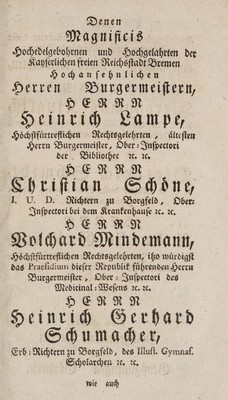 Denen
Magnificis
Hochedelgebohrnen und Hochgelahrten der
Kayserlichen freien Reichsstadt Bremen
Hochansehnlichen
Herren Burgermeistern,
HERRN
Heinrich Lampe,
Höchstfürtreflichen Rechtsgelehrten, ältesten
Herrn Burgermeister, Ober-Inspectori
der Bibliothec ꝛc. ꝛc.
HERRN
Christian Schöne,
I. U. D. Richtern zu Borgfeld, Ober-
Inspectori bei dem Krankenhause ꝛc. ꝛc.
HERRN
Volchard Mindemann,
Höchstfürtreflichen Rechtsgelehrten, itzo würdigst
das Praesidium dieser Republik führenden Herrn
Burgermeister, Ober-Inspectori des
Medicinal-Wesens ꝛc. ꝛc.
HERRN
Heinrich Gerhard
Schumacher,
Erb-Richtern zu Borgfeld, des Illust. Gymnas.
Scholarchen ꝛc. ꝛc.
wie auch